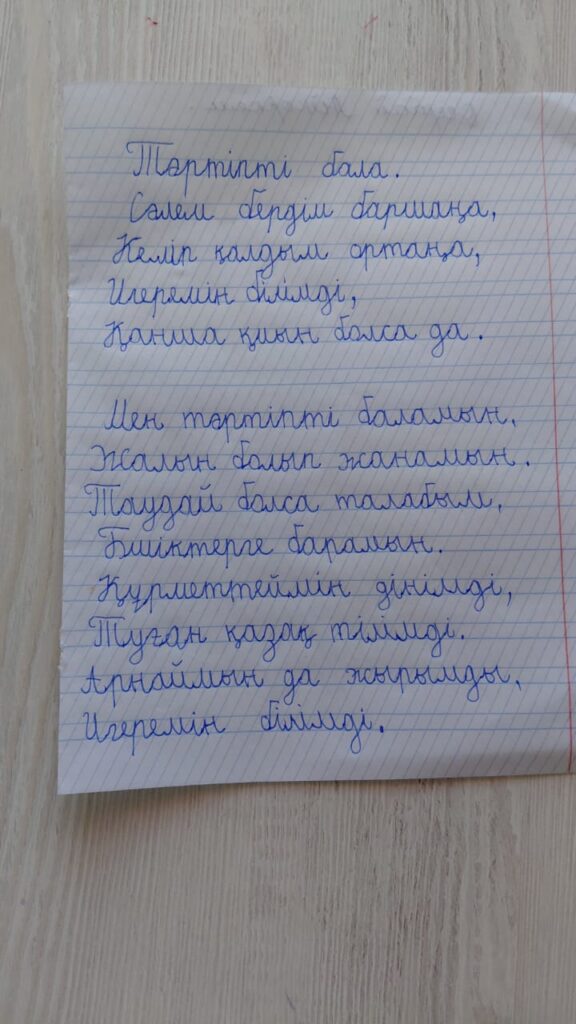 Тәртіпті бала.
Сәлем бердім баршаңа,
Келіп қалдым ортаңа,
Игеремін білімді,
Қанша қиын болса да.
Мен тәртіпті баламын,
Жалын болып жанамын.
Таудай болса талабым,
Биіктерге барамын.
Құрметтеймін дінімді,
Туған қазақ тілімді.
Арнаймын да жырымды,
Игеремін білімді.